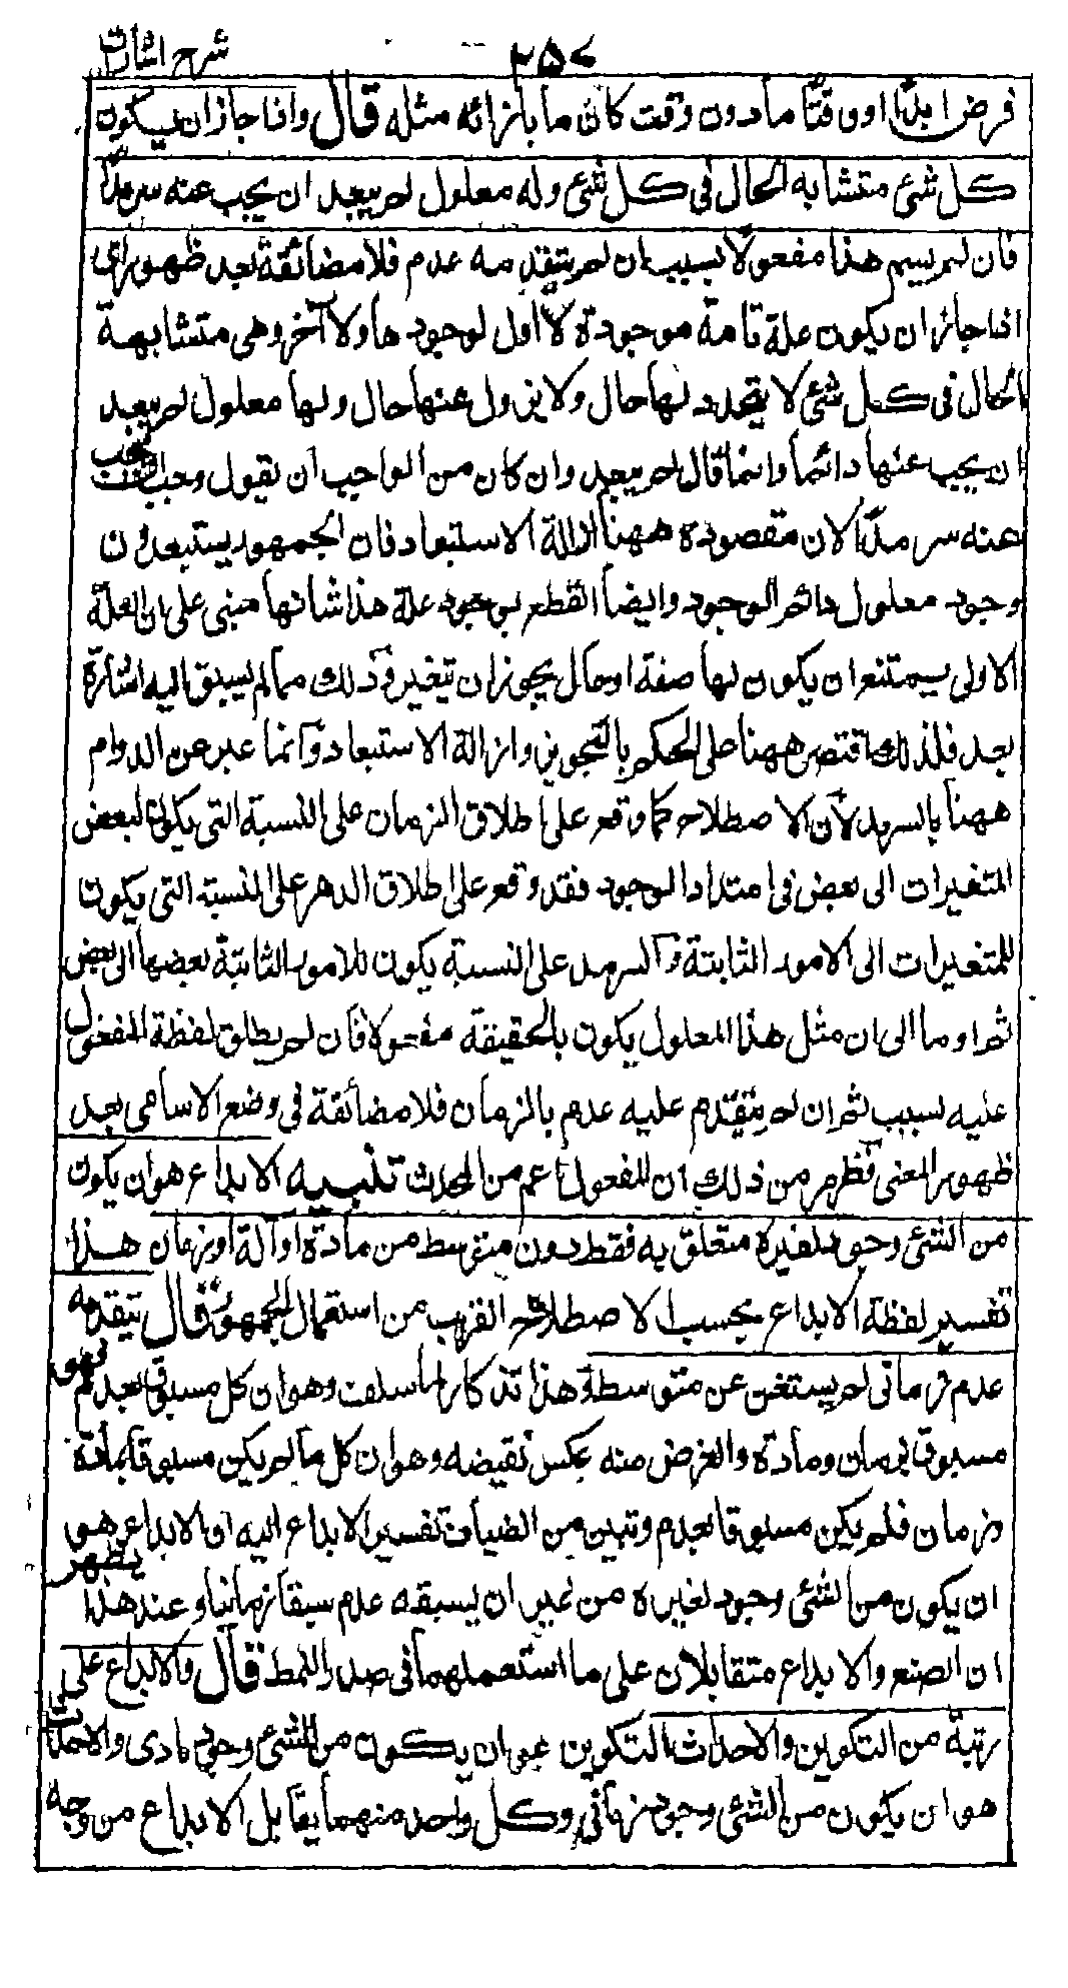 شرح اشارات
۲۵۷
فرض ابدًا او وقتًا ما دون وقت كان ما بازائه مثله قال واذا جاز ان يكون
كل شئ متشابه الحال فى كل شئ وله معلول لم يبعد ان يجب عنه سرمدًا
فان لم يسم هذا مفعولا بسبب ان لم يتقدمه عدم فلا مضائقة بعد ظهور اى
اذا جاز ان يكون علة تامة موجودة لا اول لوجودها ولا آخر وهى متشابهة
الحال فى كل شئ لا يتجدد لها حال ولا يزول عنها حال ولها معلول لم يبعد
ان يجب عنها دائما وانما قال لم يبعد وان كان من الواجب ان يقول وجب
عنه سرمدًا لان مقصوده ههنا ازالة الاستبعاد فان الجمهور يستبعدون
وجود معلول دائم الوجود وايضا القطع بوجود علة هذا شانها مبنى على ان العلة
الاولى يمتنع ان يكون لها صفة او حال يجوز ان تتغير وذلك مما لم يسبق اليه اشارة
بعد فلذلك اقتصر ههنا على الحكم بالتجويز وازالة الاستبعاد وانما عبر عن الدوام
ههنا بالسرمد لان الاصطلاح كما وقع على اطلاق الزمان على النسبة التى يكون لبعض
المتغيرات الى بعض فى امتداد الوجود فقد وقع على اطلاق الدهر على النسبة التى يكون
للمتغيرات الى الامور الثابتة والسرمد على النسبة يكون للامور الثابتة بعضها الى بعض
ثم اوما الى ان مثل هذا المعلول يكون بالحقيقة مفعولا فان لم يطلق لفظة المفعول
عليه بسبب ان لم يتقدم عليه عدم بالزمان فلا مضائقة فى وضع الاسامى بعد
ظهور المعنى فظهر من ذلك ان المفعول اعم من المحدث تنبيه الابداع هو ان يكون
من الشئ وجود لغيره متعلق به فقط دون متوسط من مادة او آلة او زمان هذا
تفسير لفظة الابداع بحسب الاصطلاح القريب من استعمال الجمهور قال وما يتقدمه
عدم زمانى لم يستغن عن متوسط وهذا تذكار لما سلف وهو ان كل مسبوق بعدم فهو
مسبوق بزمان ومادة والغرض منه عكس نقيضه وهو ان كل ما لم يكن مسبوقا بمادة
وزمان فلم يكن مسبوقا بعدم وتبين من انضياف تفسير الابداع اليه ان الابداع هو
ان يكون من الشئ وجود لغيره من غير ان يسبقه عدم سبقا زمانيا وعند هذا يظهر
ان الصنع والابداع متقابلان على ما استعملهما فى صدر النمط قال والابداع على
رتبة من التكوين والاحداث التكوين هو ان يكون من الشئ وجود مادى والاحداث
هو ان يكون من الشئ وجود زمانى وكل واحد منهما يقابل الابداع من وجه